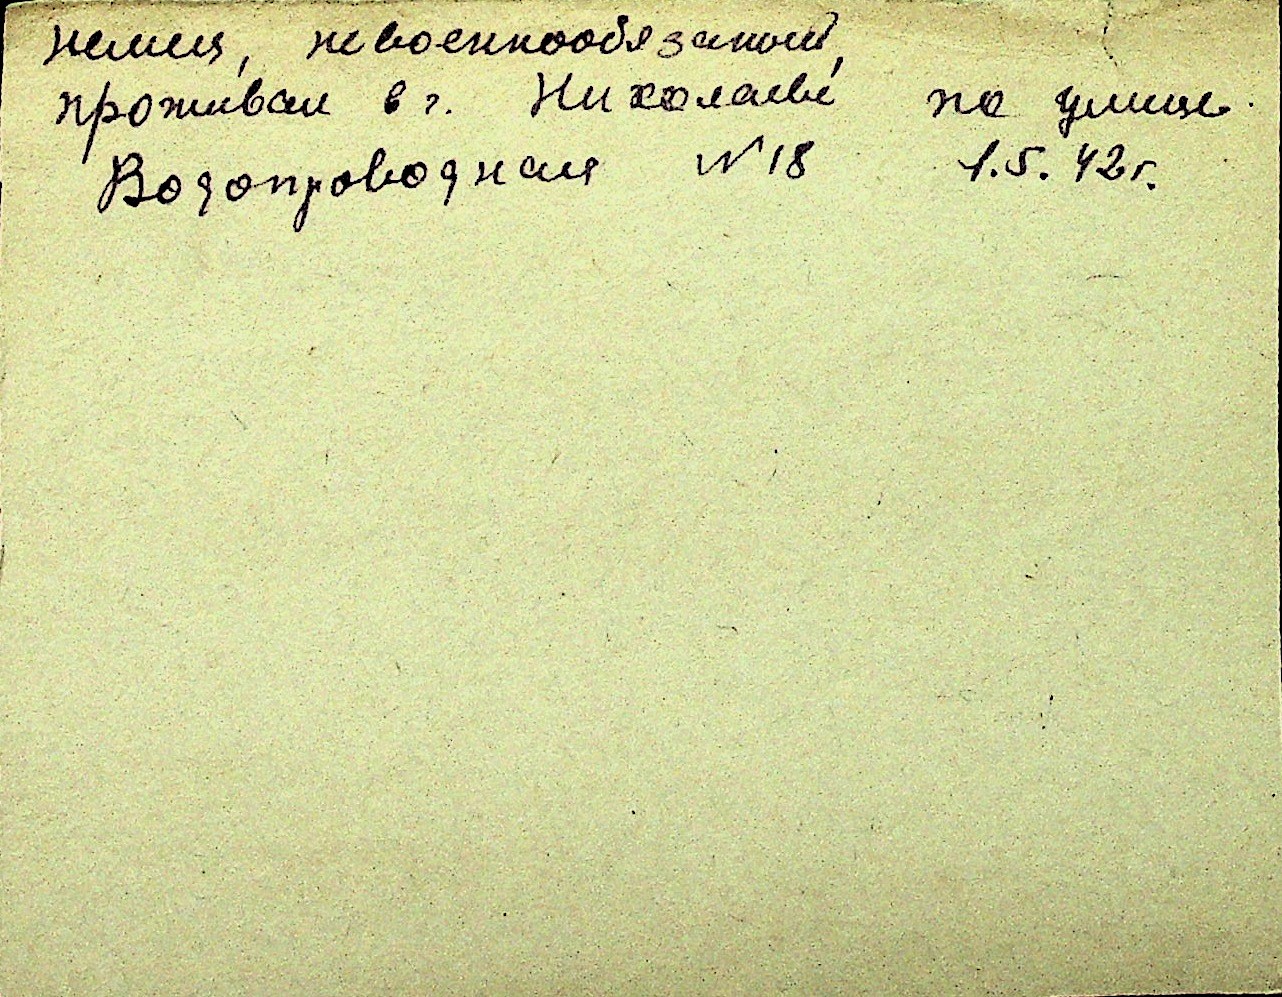 немец, невоеннообязаный,
проживал в г. Николаеве по улице
Водопроводная №18 1.5.42г.